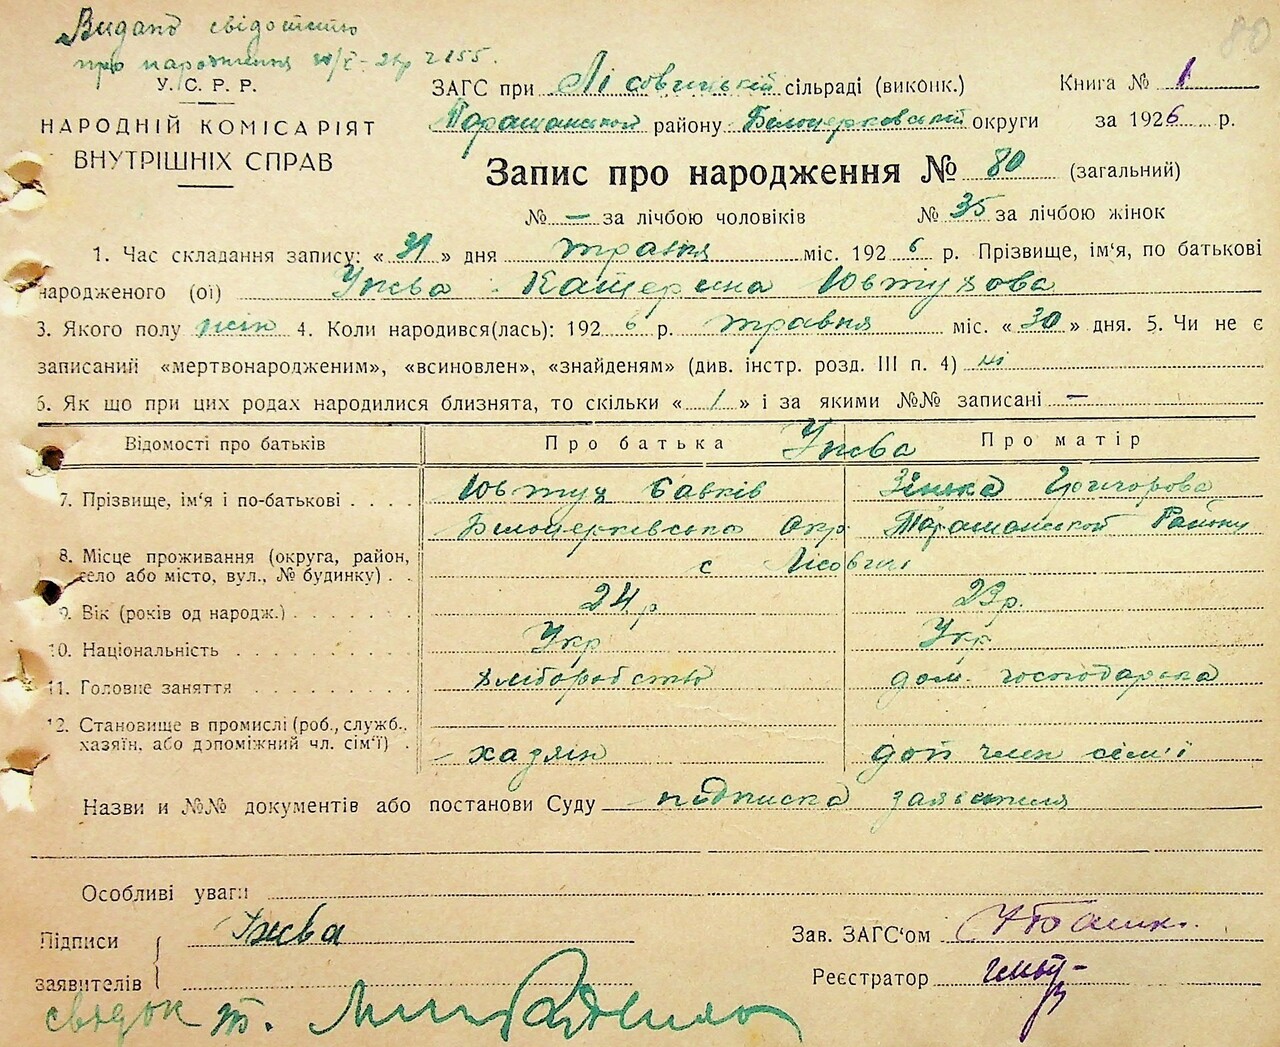 Видано свідоцтво
про народження
80
У. С. Р. Р.
НАРОДНІЙ КОМІСАРІЯТ
ВНУТРІШНІХ СПРАВ
ЗАГС при Лісовичській сільраді (виконк.) Книга № 1
Таращанской району Білоцерковській округи за 1926 р.
Запис про народження № 80 (загальний)
№ — за лічбою чоловіків № 35 за лічбою жінок
1. Час складання запису: « 31 » дня травня міс. 1926 р. Прізвище, ім'я, по батькові
народженого (ої) Ужва Катерина Ювтухова
3. Якого полу жін 4. Коли народився(лась): 1926 р. травня міс. « 30 » дня. 5. Чи не є
записаний «мертвонародженим», «всиновлен», «знайденям» (див. інстр. розд. III п. 4) ні
6. Як що при цих родах народилися близнята, то скільки « 1 » і за якими №№ записані —
Відомості про батьків Про батька Ужва Про матір
7. Прізвище, ім'я і по-батькові . . . . Ювтух Савків Зінька Григорова
Білоцерківська Окр. Таращанской Району
8. Місце проживання (округа, район, село або місто, вул., № будинку) . . с Лісовичі
9. Вік (років од народж.) . . . . . . . 24 р 23 р.
10. Національність . . . . . . . . . . Укр Укр
11. Головне заняття . . . . . . . . . хліборобство дом. господарька
12. Становище в промислі (роб., служб., хазяїн, або допоміжний чл. сім'ї) . хазяїн доп член сем'ї
Назви и №№ документів або постанови Суду підписка заявителя
Особливі уваги
Підписи Ужва Зав. ЗАГС'ом
заявителів Реєстратор
свідок